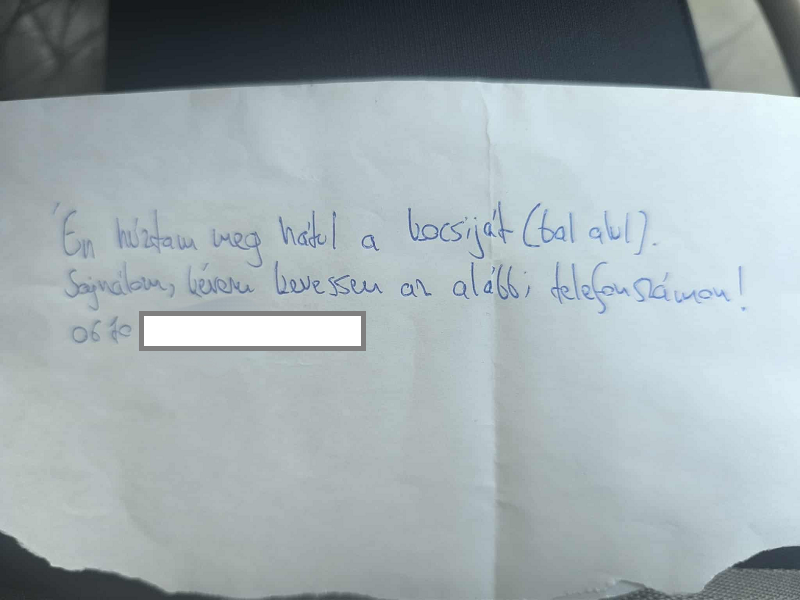 Én húztam meg hátul a kocsiját (bal alul).
Sajnálom, kérem keressen az alábbi telefonszámon!
06 70